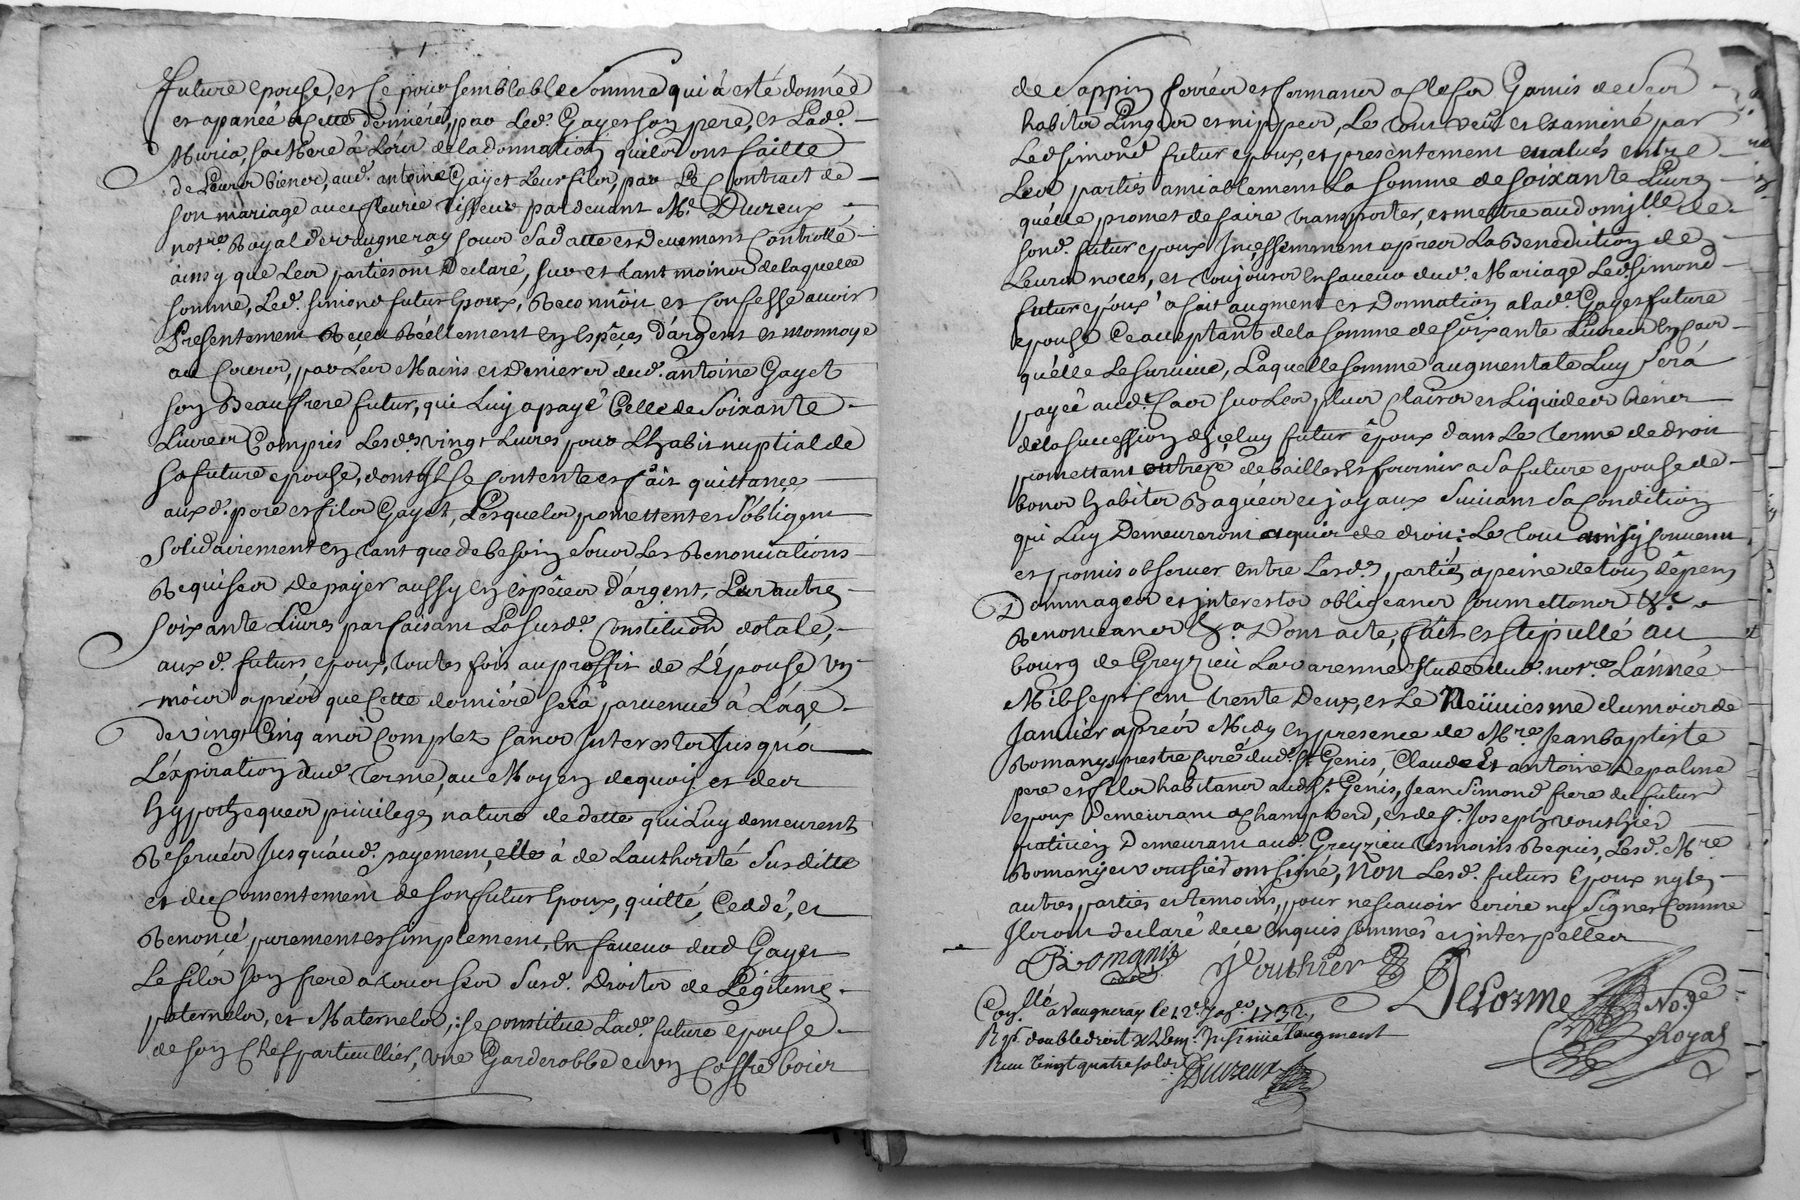 future epouse, et ce pour semblable somme qui à esté donnéé
et apanéé a cette derniére, par led. Gayet son pere, et lad.
Muria, sa mere à lors de la donnation quils ont faitte
de leurs biens, aud. antoine Gayet leur fils, par le contract de
son mariage avec fleurie tisseur pardevant Me. Duvzeux
notre. Royal de vaugneray sous sad datte et deuement controllé
ainsy que les parties ont declaré, sur et tant moins de laquelle
somme, led. simond futur epoux, Reconnôit et confesse avoir
presentement Reçeu Réellement en espêçes d'argent et monnoye
au cours, par les mains et deniers dud. antoine Gayet
son Beaufrere futur, qui luy a payé celle de soixante
livres compris lesd. vingt livres pour l'habit nuptial de
sa future epouse, dont Il se contente et fait quittançe
auxd. pere et fils Gayet, lesquels promettent et s'obligent
solidairement en tant que de besoin sous les Renonciations
Requises de payer aussy en espêces d'argent, les autres
soixante livres parfaisant la susd. constitution dotale,
auxd. futurs epoux, toutes fois au proffit de l'épouse un
mois aprés que cette derniére sera parvenue à l'âge
de vingt cinq ans complets sans Interests Jusqu'a
l'éxpiration dud. terme, au moyen dequoy et des
hypotheques privileges nature de dette qui luy demeurent
Reservés Jusqu'aud. payement, elle à de l'authorité susditte
et du consentement de son futur epoux, quitté, ceddé, et
Renoncé purement et simplement, en faveur dud Gayet
le fils son frere a tous ses susd. droits de légitime
paternels, et maternels; se constitue lad. future epouse
de son chef particullier, une Garderobbe et un coffre bois
de sappin ferrés et fermans a clefs Garnis de ses
habits linges et nippes, le tout veu et examiné par
led simond futur epoux, et presentement evalués entre
les parties amiablement la somme de soixante livres
quélle promet de faire transporter, et mettre au domicille de
sond. futur epoux Incessemment apres la Benediction de
leurs noces, et toujours en faveur dud. mariage led. simond
futur epoux a fait augment et donnation a lad. Gayet future
epouse ce acceptant de la somme de soixante livres en cas
quélle le survive, laquelle somme augmentale luy será
payéé aud. cas sur les plus clairs et liquides biens
de la succession d'içeluy futur epoux dans le terme de droit
promettant outre ce de bailler et fournir a sa future epouse de
bons habits Bagues et joyaux suivant sa condition
qui luy demeureront acquis de droit; Le tout ainsy convenu
et promis observer entre lesd. parties a peine de tous dêpens
Dommages et interests obligeans soumettans &c.
Renonceans &a. Dont acte, fait et stipullé au
bourg de Greyzieu la varenne etude dud. notre. l'année
Mil sept cent trente deux, et le Neuviesme du mois de
Janvier aprés Midy en presence de Mre. Jean baptiste
Romany prestre curé dud. St Genis, Claude et antoine Depalme
pere et fils habitans aud. St. Genis, Jean Simond frere du futur
epoux Demeurant a champverd, et de sr. Joseph vouthier
praticien Demeurant aud. Greyzieu tesmoins Requis, lesd. Mre
Romany et vouthier ont signé, non lesd. futurs epoux ny les
autres parties et temoins, pour ne scavoir écrire ny signer comme
Ils ont declaré de ce enquis sommés et interpellés
Romany
Vouthier
Delorme
No.re
Royal
Conllé a Vaugneray le 12e. Janer. 1732.
double droit
augment
Receu vingt quatre sols
Duvzeux